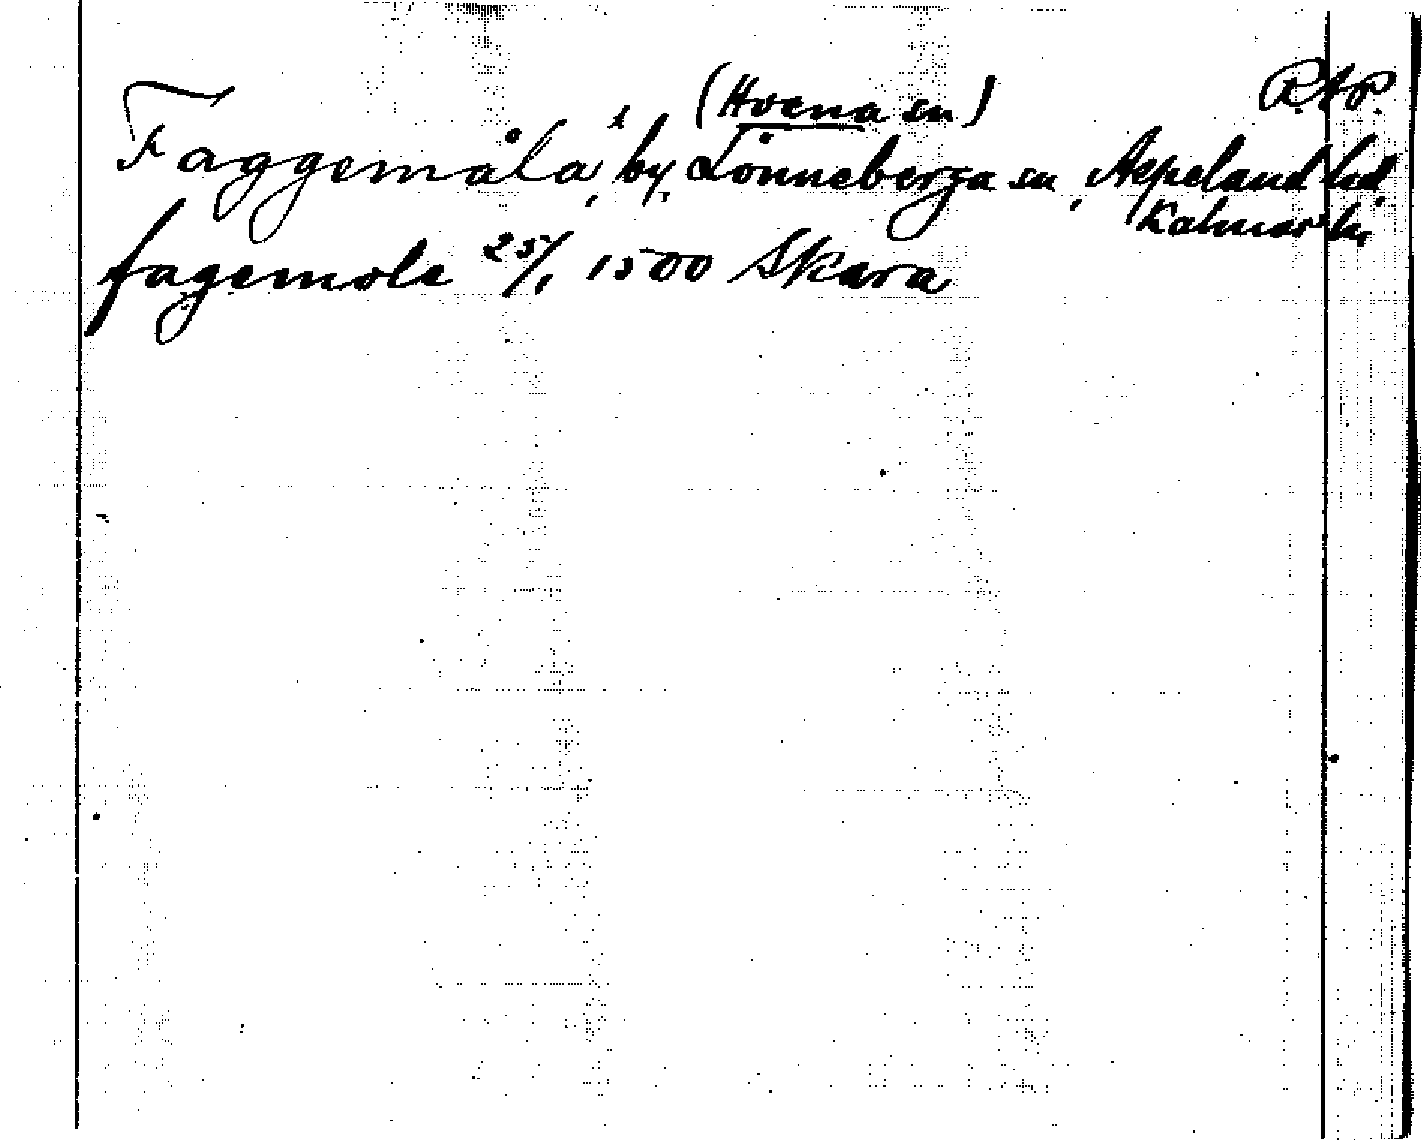 (Hvena sn) RAP.
Faggemåla, by, Lönneberga sn, Aspeland hd
Kalmar län
fagemole 25/1 1500 Skara